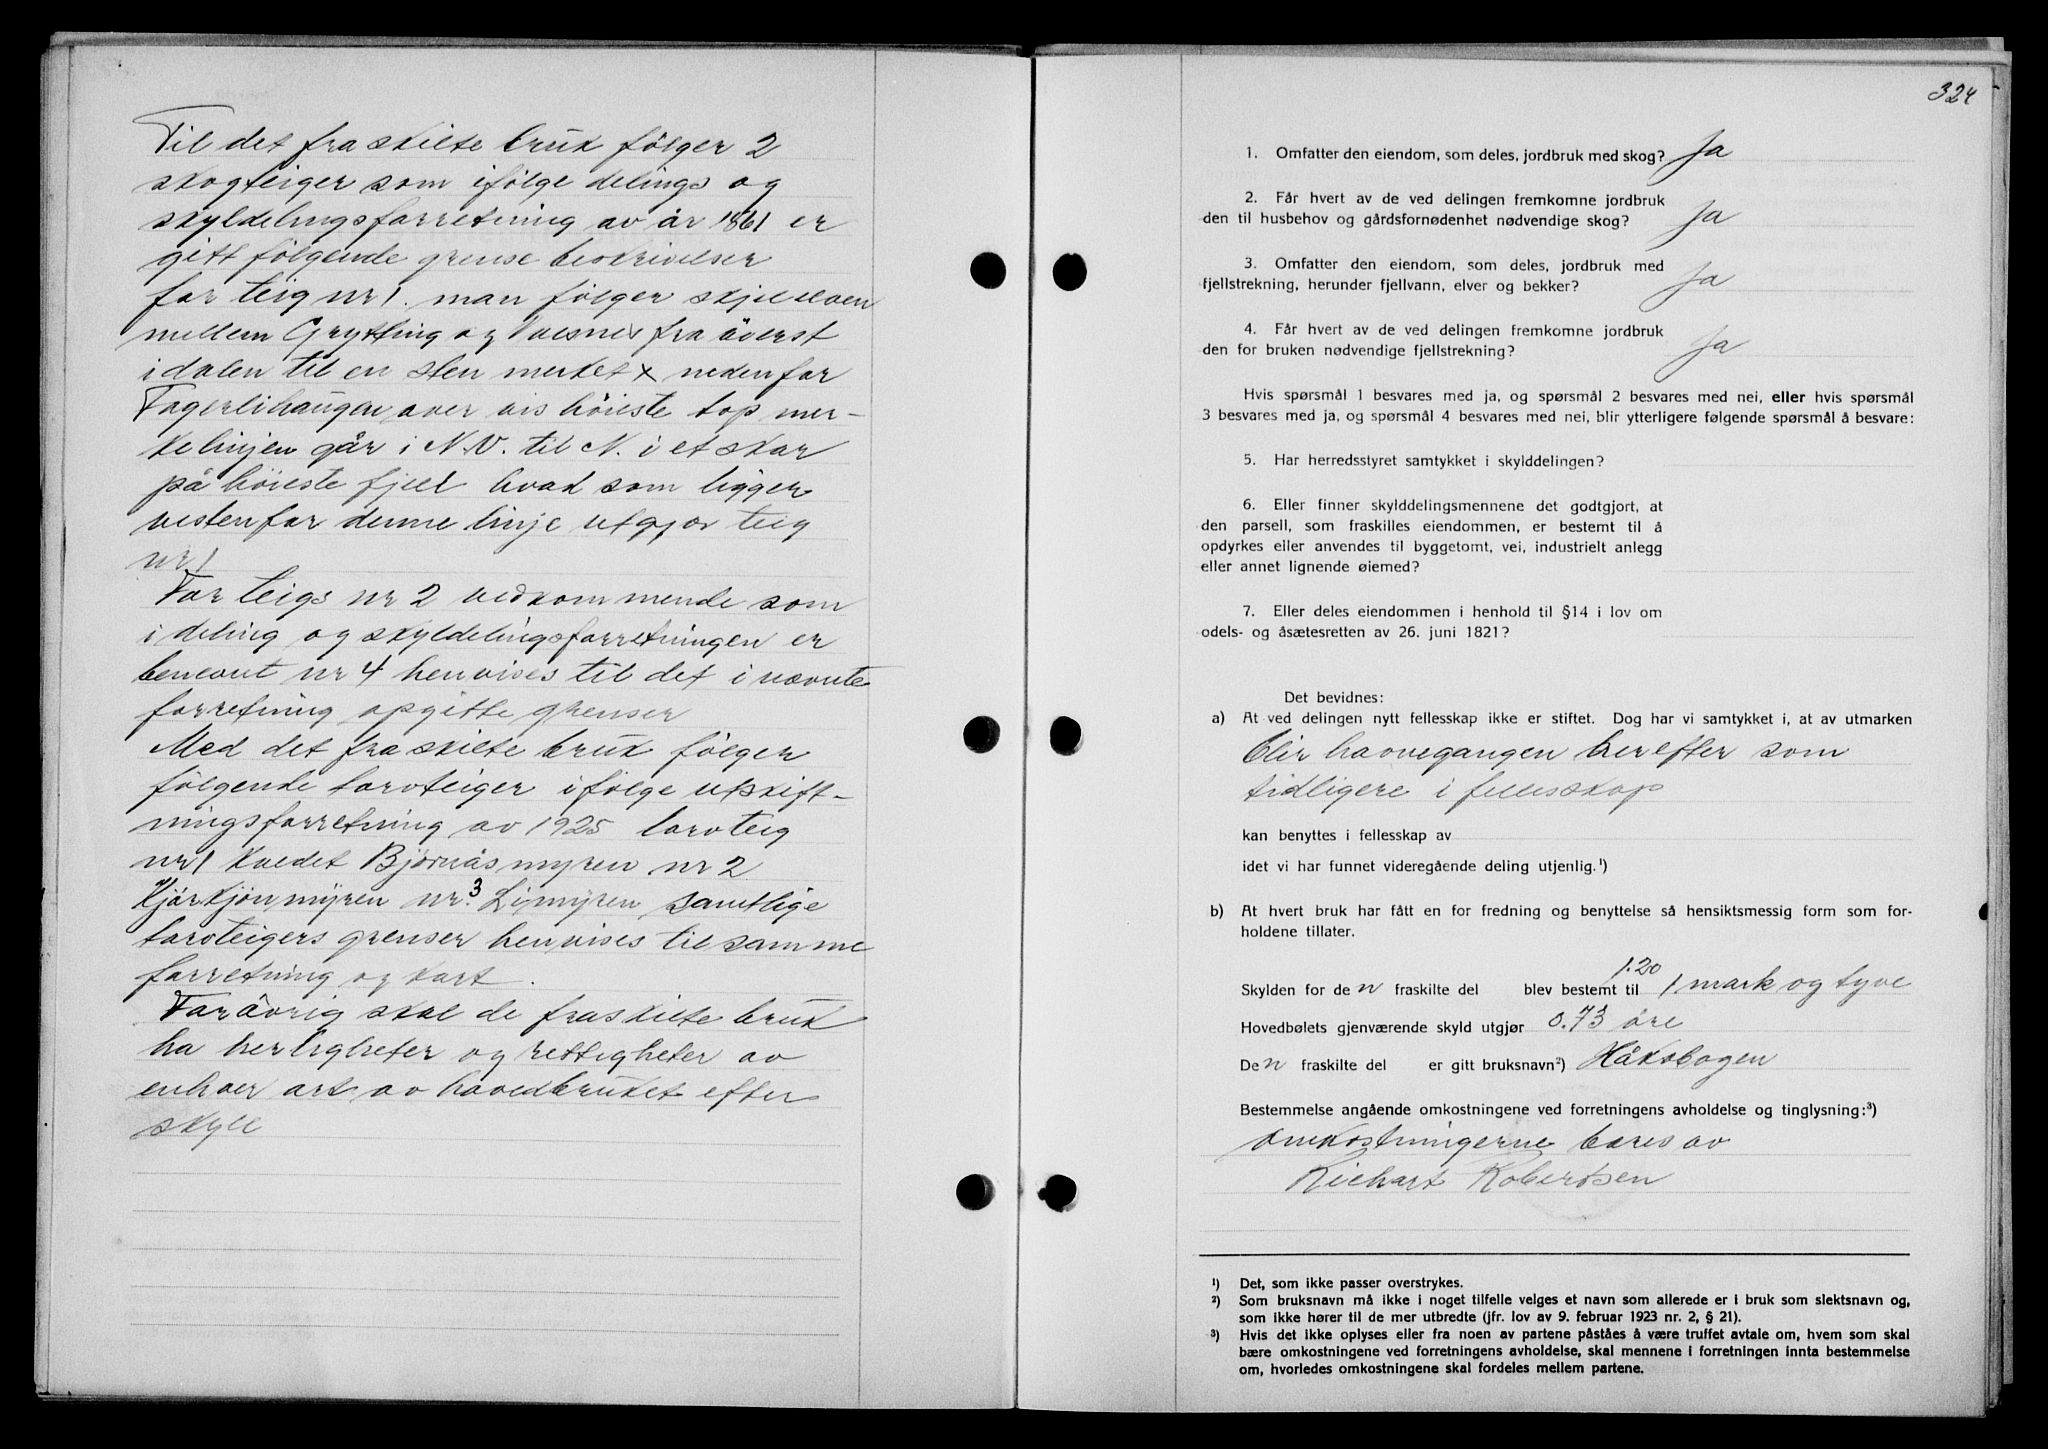 Til det fraskilte bruk følger 2
skogteiger som ifølge delings og
skyldelingsforretning av år 1861 er
gitt følgende grense beskrivelser
for teig nr 1. man følger skjel elven
mellem Grytting og Vaesnes fra överst
i dalen til en sten merket x nedenfor
Fagerlihaugen over vis höieste top mer-
kelinjen går i N.V. til N. i et skar
på höieste fjell hvad som ligger
vestenfor denne linje utgjør teig
nr 1
For teigs nr 2 vedkommende som
i deling og skyldelingsforretningen er
benevnt nr 4 henvises til det i nævnte
forretning opgitte grenser
Med det fraskilte bruk følger
følgende torvteiger ifølge utskift-
ningsforretning av 1925 torvteig
nr 1 kaldet Bjørnåsmyren nr 2
Kjørkjønmyren nr. 3 Limyren samtlige
torvteigers grenser henvises til samme
forretning og kart.
Forövrig skal de fraskilte bruk
ha herligheter og rettigheter av
enhver art av hovedbruket efter
skyll
324
1. Omfatter den eiendom, som deles, jordbruk med skog? Ja
2. Får hvert av de ved delingen fremkomne jordbruk
den til husbehov og gårdsfornødenhet nødvendige skog? Ja
3. Omfatter den eiendom, som deles, jordbruk med
fjellstrekning, herunder fjellvann, elver og bekker? Ja
4. Får hvert av de ved delingen fremkomne jordbruk
den for bruken nødvendige fjellstrekning? Ja
Hvis spørsmål 1 besvares med ja, og spørsmål 2 besvares med nei, eller hvis spørsmål
3 besvares med ja, og spørsmål 4 besvares med nei, blir ytterligere følgende spørsmål å besvare:
5. Har herredsstyret samtykket i skylddelingen?
6. Eller finner skylddelingsmennene det godtgjort, at
den parsell, som fraskilles eiendommen, er bestemt til å
opdyrkes eller anvendes til byggetomt, vei, industrielt anlegg
eller annet lignende øiemed?
7. Eller deles eiendommen i henhold til §14 i lov om
odels- og åsætesretten av 26. juni 1821?
Det bevidnes:
a) At ved delingen nytt fellesskap ikke er stiftet. Dog har vi samtykket i, at av utmarken
blir havnegangen herefter som
tidligere i fellesskap
kan benyttes i fellesskap av
idet vi har funnet videregående deling utjenlig.¹)
b) At hvert bruk har fått en for fredning og benyttelse så hensiktsmessig form som for-
holdene tillater.
1.20
Skylden for den fraskilte del blev bestemt til 1 mark og tyve
Hovedbølets gjenværende skyld utgjør 0.73 øre
Den fraskilte del er gitt bruksnavn²) Håksbogen
Bestemmelse angående omkostningene ved forretningens avholdelse og tinglysning:³)
omkostningerne bæres av
Richart Robertsen
¹) Det, som ikke passer overstrykes.
²) Som bruksnavn må ikke i noget tilfelle velges et navn som allerede er i bruk som slektsnavn og,
som ikke hører til de mer utbredte (jfr. lov av 9. februar 1923 nr. 2, § 21).
³) Hvis det ikke oplyses eller fra noen av partene påståes å være truffet avtale om, hvem som skal
bære omkostningene ved forretningens avholdelse, skal mennene i forretningen innta bestemmelse
om, hvorledes omkostningene skal fordeles mellem partene.